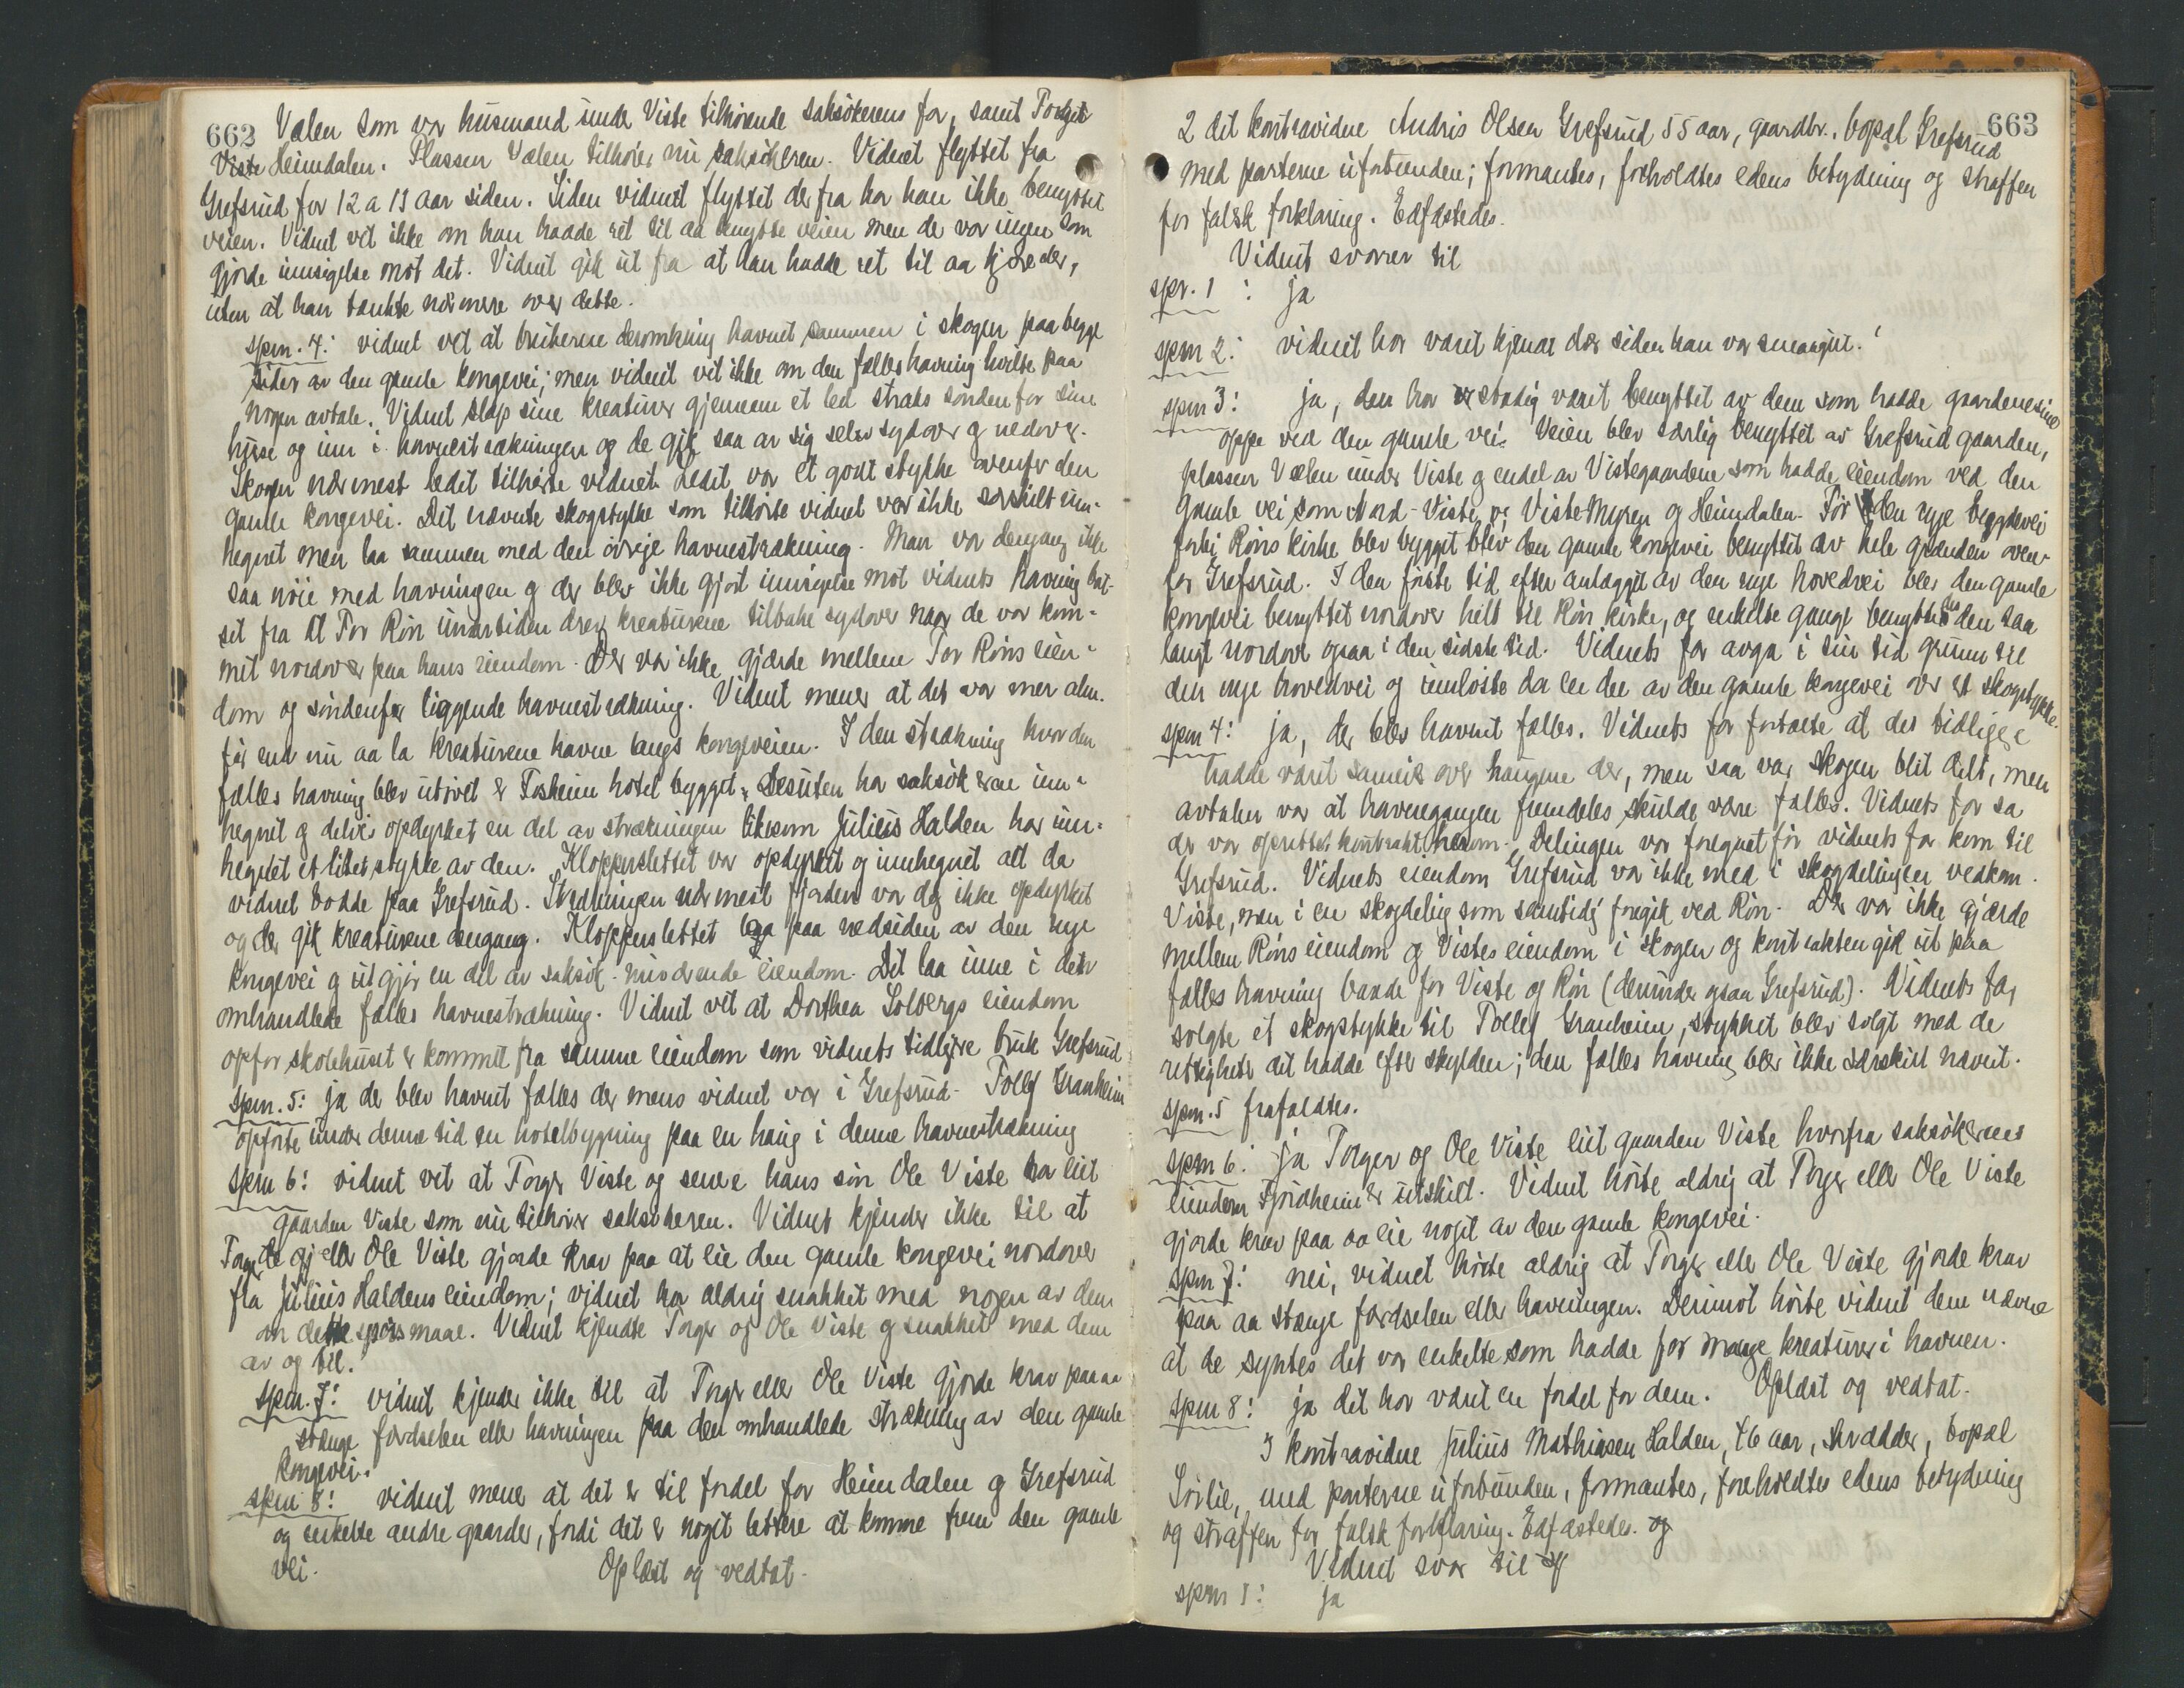 662
Vælen som var husmand under Viste tilhörende saksökerens far, samt Torger
Viste Heimdalen. Plassen Vælen tilhörer nu saksökeren. Vidnet flyttet fra
Grefsrud for 12 a 13 aar siden. Siden vidnet flyttet derfra har han ikke benyttet
veien. Vidnet vet ikke om han hadde ret til aa benytte veien men der var ingen som
gjorde innsigelse mot det. Vidnet gik ut fra at han hadde ret til aa kjöre der,
uten at han tænkte nærmere over dette.
spm. 4: vidnet vet at brukerne deromkring havnet sammen i skogen paa begge
sider av den gamle kongevei; men vidnet vet ikke om den fælles havning hvilte paa
nogen avtale. Vidnet slap sine kreaturer gjennem et led straks sönden for sine
huse og inn i havnestrækningen og de gik saa av sig selv sydover og nedover.
Skogen nærmest ledet tilhörte vidnet. Ledet var et godt stykke ovenfor den
gamle kongevei. Det nævnte skogstykke som tilhörte vidnet var ikke særskilt inn-
hegnet men laa sammen med den övrige havnestrækning. Man var dengang ikke
saa nöie med havningen og der blev ikke gjort innsigelse mot vidnets havning bort-
set fra at Tor Rön undertiden drev kreaturene tilbake sydover naar de var kom-
met nordover paa hans eiendom. Der var ikke gjærde mellem Tor Röns eien-
dom og söndenfor liggende havnestrækning. Vidnet mener at det var mer alm.
för end nu aa la kreaturene havne langs kongeveien. I den strækning hvor den
fælles havning blev utövet er Fosheim hotel bygget. Desuten har saksökeren inn-
hegnet og delvis opdyrket en del av strækningen likesom Julius Halden har inn-
hegnet et litet stykke av den. Klopperslettet var opdyrket og innhegnet alt da
vidnet bodde paa Grefsrud. Strækningen nærmest fjorden var dog ikke opdyrket
og der gik kreaturene dengang. Klopperslettet laa paa nedsiden av den nye
kongevei og utgjör en del av saksök. nuværende eiendom. Det laa inne i den
omhandlede fælles havnestrækning. Vidnet vet at Dorthea Solbergs eiendom
opfor skolehuset er kommet fra samme eiendom som vidnets tidligere bruk Grefsrud
spm. 5: ja der blev havnet fælles der mens vidnet var i Grefsrud. Tollef Granheim
opförte under denne tid en hotelbygning paa en haug i denne havnestrækning
spm 6: vidnet vet at Torger Viste og senere hans sön Ole Viste har eiet
gaarden Viste som nu tilhörer saksökeren. Vidnet kjender ikke til at
Torger eller Ole Viste gjorde krav paa at eie den gamle kongevei nordover
fra Julius Haldens eiendom; vidnet har aldrig snakket med nogen av dem
om dette spörsmaal. Vidnet kjendte Torger og Ole Viste og snakket med dem
av og til.
spm. 7: vidnet kjender ikke til at Torger eller Ole Viste gjorde krav paa aa
stænge færdselen eller havningen paa den omhandlede strækning av den gamle
kongevei.
spm 8: vidnet mener at det er til fordel for Heimdalen og Grefsrud
og enkelte andre gaarder, fordi det er noget lettere at komme frem den gamle
vei. Oplæst og vedtat.
663
2 det kontravidne Andris Olsen Grefsrud 55 aar, gaardbr., bopæl Grefsrud
med parterne uforbunden; formantes, foreholdtes edens betydning og straffen
for falsk forklaring. Edfæstedes.
Vidnet svarer til
spr. 1: ja
spm 2: vidnet har vært kjendt der siden han var smaagut.
spm 3: ja, den har stadig været benyttet av dem som hadde gaardene sine
oppe ved den gamle vei. Veien blev særlig benyttet av Grefsrud gaarden,
plassen Vælen under Viste og endel av Vistegaardene som hadde eiendom ved den
gamle vei som Nord-Viste, Viste Myren og Heimdalen. För den nye bygdevei
forbi Röns kirke blev bygget blev den gamle kongevei benyttet av hele grænden oven-
for Grefsrud. I den förste tid efter anlægget av den nye hovedvei blev den gamle
kongevei benyttet nordover helt til Rön kirke, og enkelte ganger benyttes den saa
langt nordover ogsaa i den sidste tid. Vidnets far avga i sin tid grunn til
den nye hovedvei og innlöste da en del av den gamle kongevei over et skogstykke.
spm 4: ja, der blev havnet fælles. Vidnets far fortalte at det tidligere
hadde været sameie over haugene der, men saa var skogen blit delt, men
avtalen var at havnegangen fremdeles skulde være fælles. Vidnets far sa
der var oprettet kontrakt herom. Delingen var foregaaet för vidnets far kom til
Grefsrud. Vidnets eiendom Grefsrud var ikke med i skogdelingen vedkom.
Viste, men i en skogdeling som samtidig foregik ved Rön. Der var ikke gjærde
mellem Röns eiendom og Vistes eiendom i skogen og kontrakten gik ut paa
fælles havning baade for Viste og Rön (derunder ogsaa Grefsrud). Vidnets far
solgte et skogstykke til Tollef Granheim, stykket blev solgt med de
rettigheter det hadde efter skylden; den fælles havning blev ikke særskilt nævnt.
spm. 5 frafaldtes.
spm 6: ja Torger og Ole Viste eiet gaarden Viste hvorfra saksökerens
eiendom Fjordheim er utskilt. Vidnet hörte aldrig at Torger eller Ole Viste
gjorde krav paa aa eie noget av den gamle kongevei.
spm 7: nei, vidnet hörte aldrig at Torger eller Ole Viste gjorde krav
paa aa stænge færdselen eller havningen. Derimot hörte vidnet dem nævne
at de syntes det var enkelte som hadde for mange kreaturer i havnen.
spm 8: ja det har været en fordel for dem. Oplæst og vedtat.
3 kontravidne Julius Mathiasen Halden, 46 aar, skrædder, bopæl
Sörlie, med parterne uforbunden, formantes, foreholdtes edens betydning
og straffen for falsk forklaring. Edfæstedes. og
Vidnet svar til
spm 1: ja